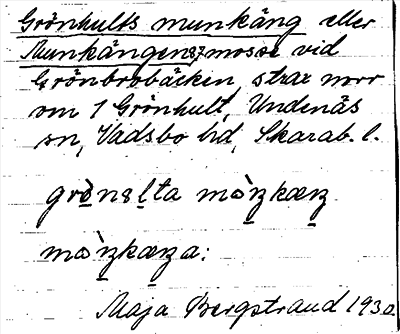 Grönhults munkäng eller
Munkängen, mosse vid
Grönbrobäcken strax norr
om 1 Grönhult, Undenäs
sn, Vadsbo hd, Skarab. l.
Maja Bergstrand 1930